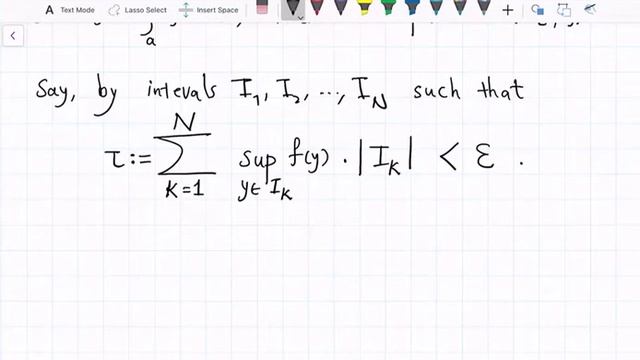 A Text Mode Lasso Select Insert Space
a
Say, by intervals I₁, I₂, ..., I_N such that
τ := ∑_{k=1}^{N} sup_{y∈I_k} f(y) · |I_k| < ε .